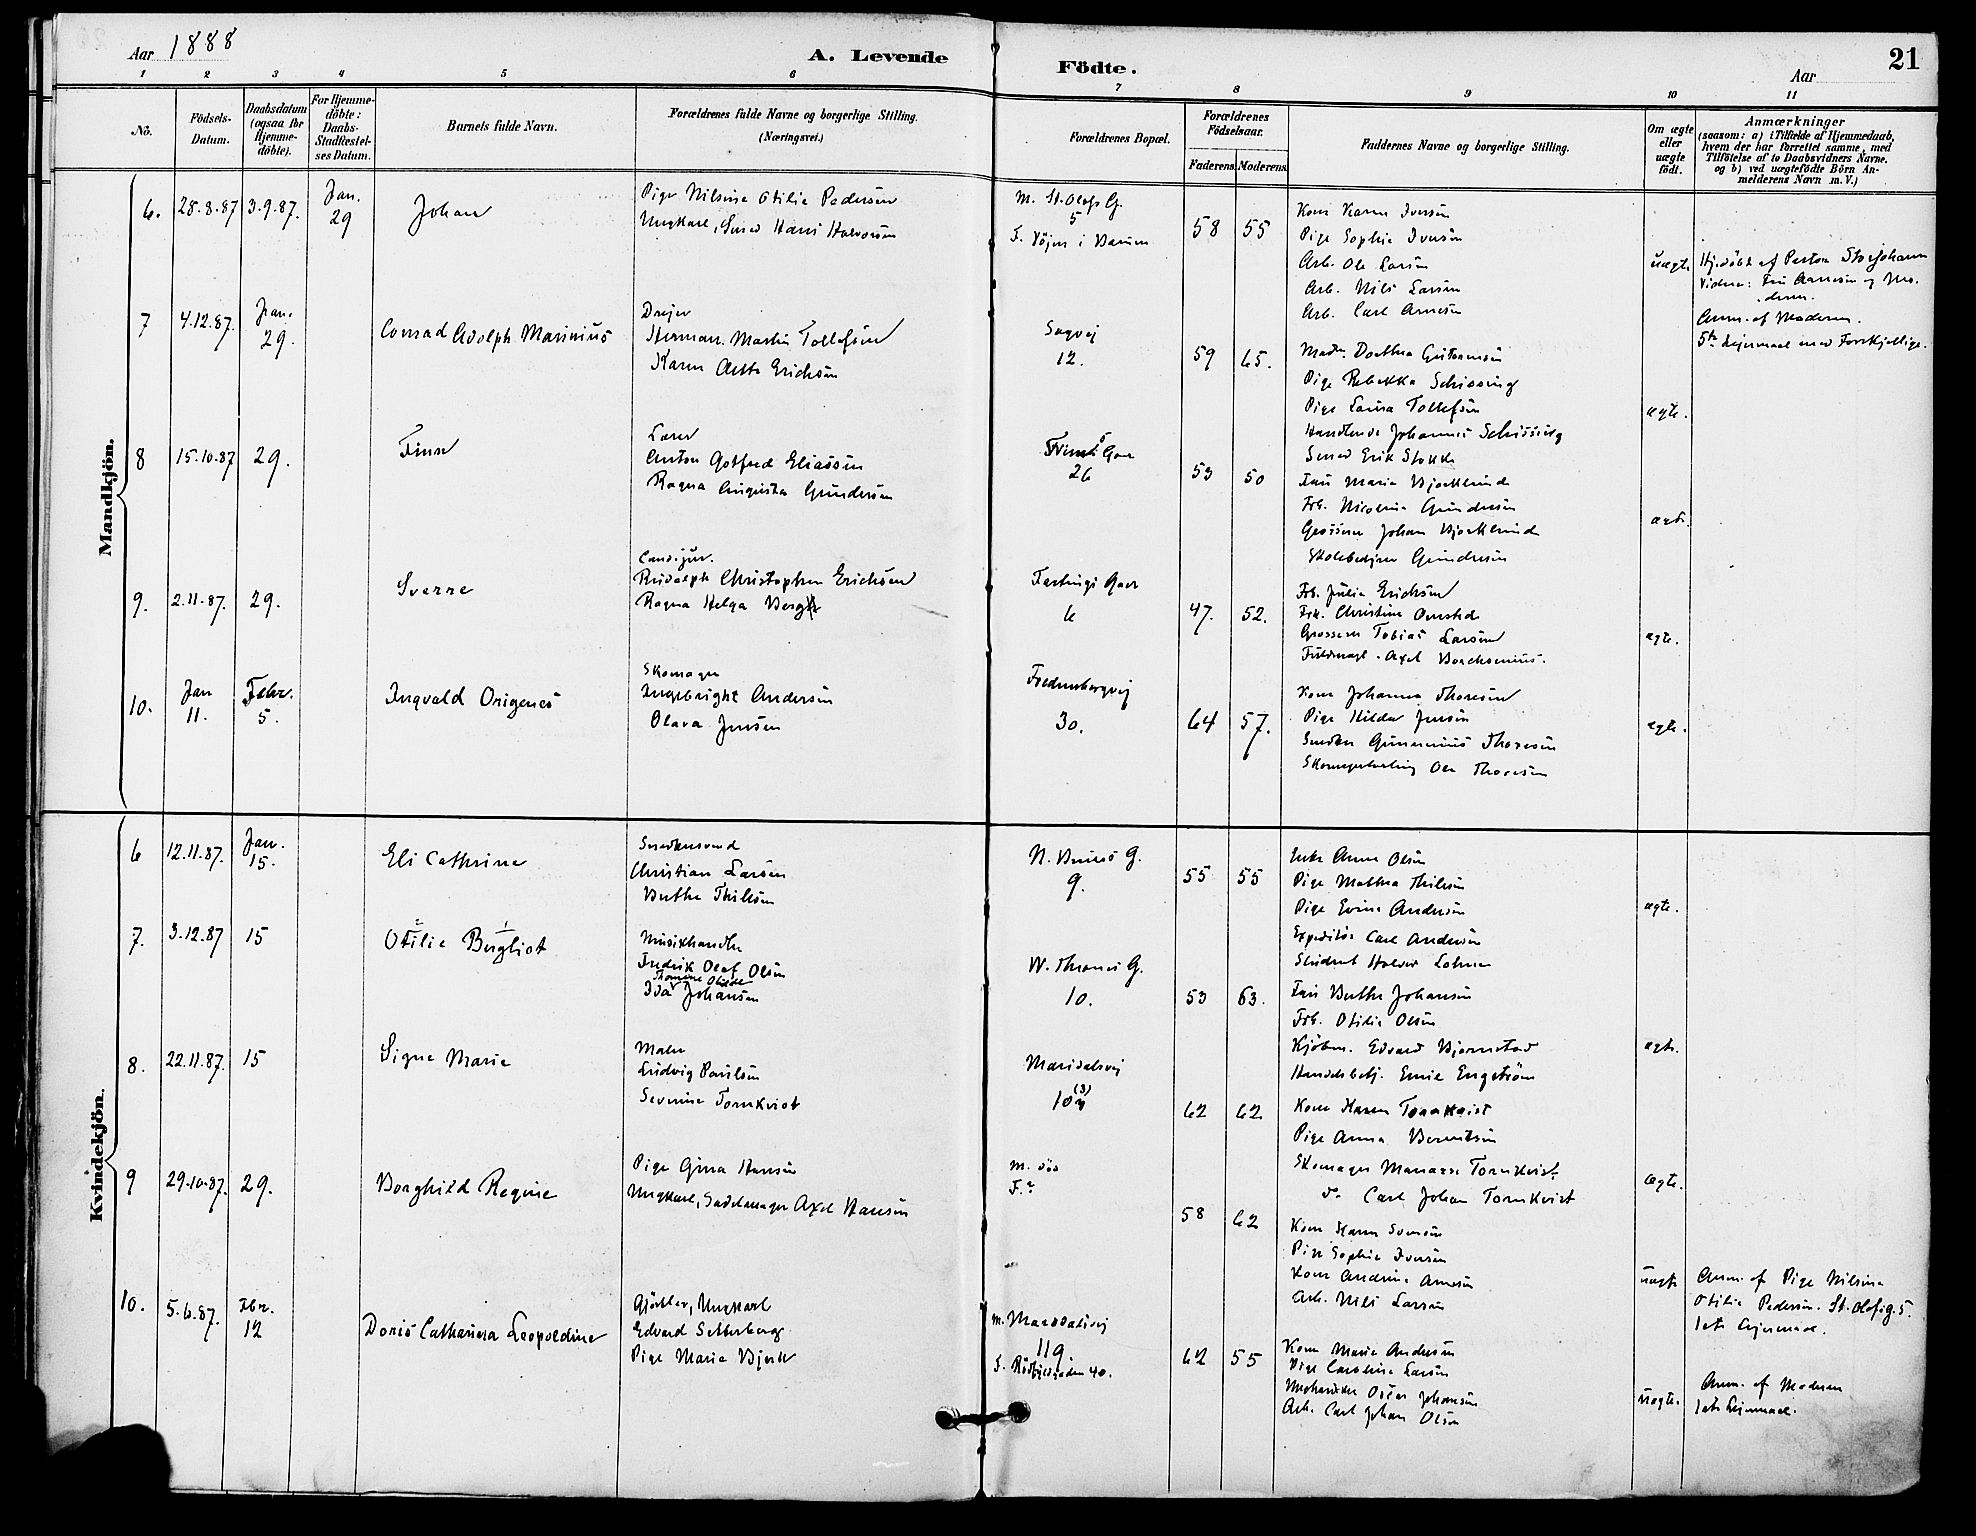 Aar 1888
A. Levende Födte.
Aar
21
1 2 3 4 5 6 7 8 9 10 11
No.
Födsels-Datum.
Daabsdatum (ogsaa for Hjemme-döbte).
For Hjemme-döbte: Daabs-Stadfæstel-ses Datum.
Barnets fulde Navn.
Forældrenes fulde Navne og borgerlige Stilling.
(Næringsvei.)
Forældrenes Bopæl.
Forældrenes Födselsaar.
Faderens. Moderens.
Faddernes Navne og borgerlige Stilling.
Om ægte eller uægte födt.
Anmærkninger
(saasom: a) i Tilfælde af Hjemmedaab,
hvem der har forrettet samme, med
Tilföielse af to Daabsvidners Navne.
og b) ved uægtefödte Börn An-
melderens Navn m.V.)
Mandkjön.
6. 28.8.87 3.9.87. Jan. 29 Johan
Pige Nilsine Otilie Pedersen
Ungkarl, Smed Hans Halvorsen
M. St. Olafs G.
5
F. i Bærum
58 55
Kone Karen Iversen
Pige Sophie Iversen
Arb. Ole Larsen
Arb. Nils Larsen
Arb. Carl Arnesen
uægte
Hj.döbt af Pastor Storjohann
Vidner: Fru Arnesen og Mo-
deren.
Anm. af Moderen.
5te Leiermaal med Forskjellige.
7 4.12.87. Jan. 29. Conrad Adolph Marinius
Drejer
Herman Martin Tollefsen
Karen Erichsen
Sagvej
12.
59 65.
Pige Rebekka Schissing
Pige Laura Tollefsen
Handlende Johannes Schissing
Smed Erik Stokke
ægte.
8 15.10.87 29. Finn
Lærer
Anton Gotfred Eliassen
Ragna Augusta Gundersen
26
53 50
Fru Marie Bjorklund
Frk. Nicoline Gundersen
Grosserer Johan Bjorklund
Skolebestyrer Gundersen
ægte.
9. 2.11.87. 29. Sverre
Cand.jur.
Rudolph Christopher Erichsen
Ragna Helga Bergh
Fastings Gave
6
47. 52.
Frk. Julie Erichsen
Frk. Christine Omsted
Grosserer Tobias Larsen
Fuldmægt. Axel Borchsenius.
ægte.
10. Jan 11. Febr. 5. Ingvald Origenes
Skomager
Ingebright Andersen
Olava Jensen
Fredensborgvej
30.
64 57.
Kone Johanna Thoresen
Pige Hilda Jensen
Snedker Gunerius Thoresen
Skomagerlærling Ole Thoresen
ægte.
Kvindekjön.
6 12.11.87. Jan. 15. Eli Cathrine
Snedkersvend
Christian Larsen
Berthe Thilesen
N. Bruns G.
9.
55 55
Enke Anne Olsen
Pige Mathea Thilesen
Pige Evine Andersen
Expeditör Carl Andersen
Student Halvor
ægte.
7. 3.12.87 15 Otilie Bergliot
Musikhandler
Fredrik Olaf Olsen
Thomine Otilde
Ida Johansen
W. Thranes G.
10.
53 63.
Fru Berthe Johansen
Frk. Otilie Olsen
Kjöbm. Edvard Bjornstad
Handelsbetj. Emil Engström
ægte.
8. 22.11.87. 15 Signe Marie
Maler
Ludvig Paulsen
Severine Tornkvist
Maridalsvej
10 (3)
62 62
Kone Karen Tornkvist
Pige Anna Berntsen
Skomager Manasse Tornkvist
do. Carl Johan Tornkvist
ægte.
9 29.10.87. 29. Borghild Regine
Pige Gina Hansen
Ungkarl, Sadelmager Axel Hansen
M. död
F. ?
58 62
Kone Karen Iversen
Pige Sophie Iversen
Kone Andrine Arnesen
Arb. Nils Larsen
uægte
Anm. af Pige Nilsine
Otilie Pedersen. St. Olafsg. 5.
1ste Leiermaal.
10. 5.6.87. Fbr. 12 Doris Cathinca Leopoldine
Gjörtler, Ungkarl
Edvard Setterberg
Pige Marie Bjerk
M. Maridalsvej
119.
F. 40.
62 55
Kone Marie Andersen
Pige Caroline Larsen
Mechaniker Oscar Johansen
Arb. Carl Johan Olsen
uægte.
Anm. af Moderen
1ste Leiermaal.